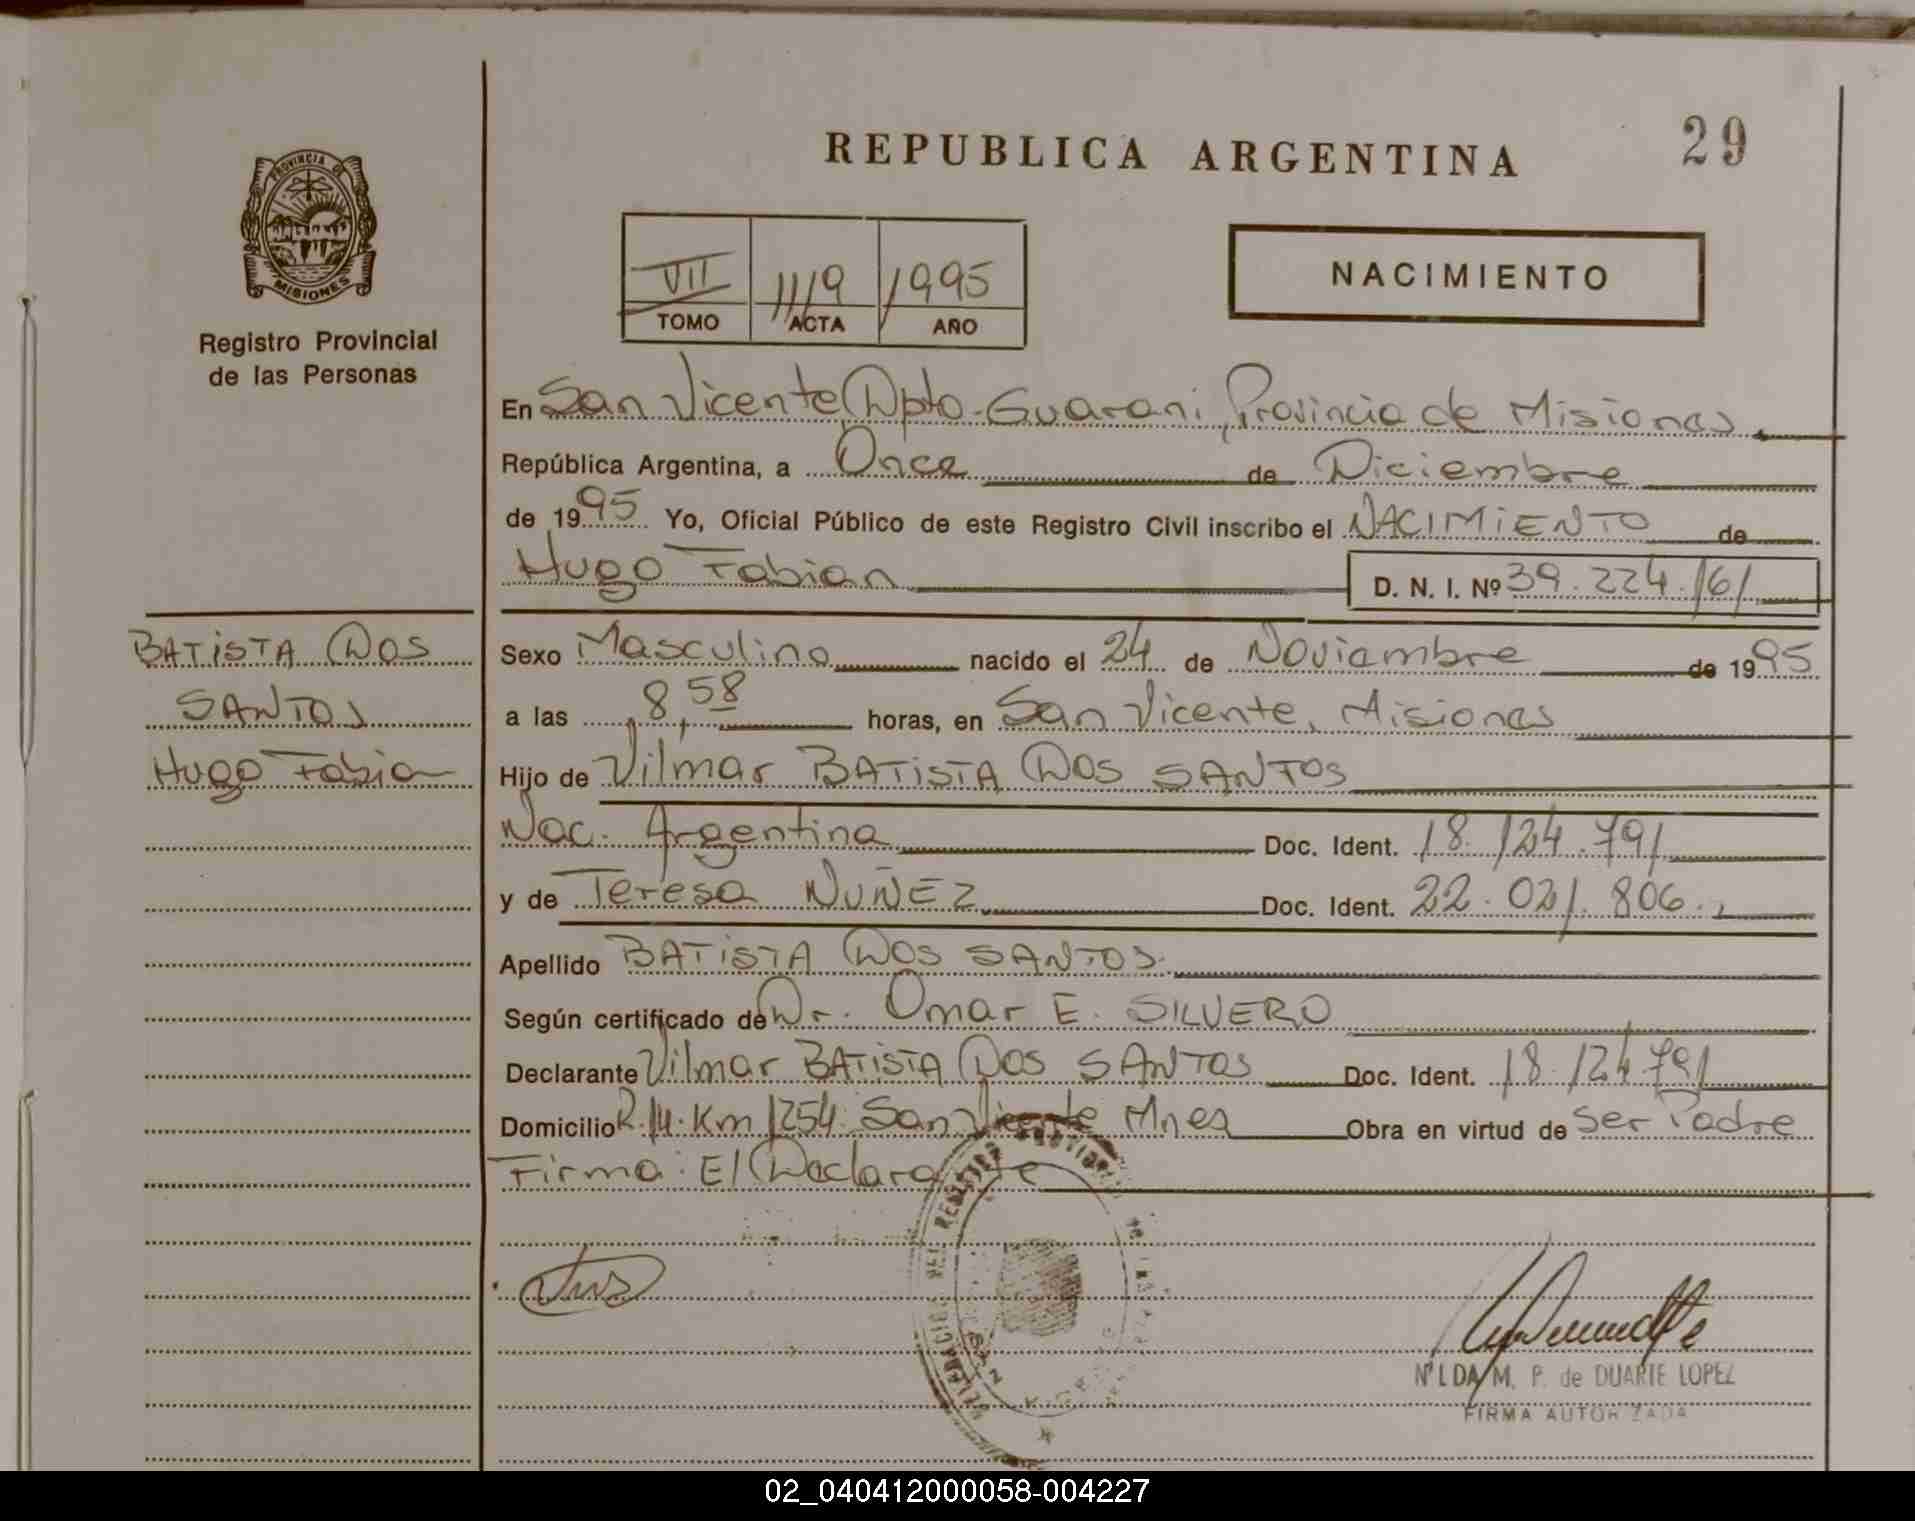 REPUBLICA ARGENTINA
29
PROVINCIA DE
MISIONES
Registro Provincial
de las Personas
VII 1119 1995
TOMO ACTA AÑO
NACIMIENTO
En San Vicente, Dpto. Guarani, Provincia de Misiones
República Argentina, a Once de Diciembre
de 1995 Yo, Oficial Público de este Registro Civil inscribo el NACIMIENTO de
Hugo Fabian D. N. I. Nº 39.224.161
BATISTA DOS
SANTOS
Hugo Fabian
Sexo Masculino nacido el 24 de Noviembre de 1995
a las 8,58 horas, en San Vicente, Misiones
Hijo de Vilmar BATISTA DOS SANTOS
Nac. Argentina Doc. Ident. 18.124.791
y de Teresa NUÑEZ Doc. Ident. 22.021.806.,
Apellido BATISTA DOS SANTOS.
Según certificado de Dr. Omar E. SILVERO
Declarante Vilmar BATISTA DOS SANTOS Doc. Ident. 18.124.791
Domicilio R.14. Km 1254. San Vicente Mnes Obra en virtud de ser Padre
Firma: El Declarante
NILDA M. P. de DUARTE LOPEZ
FIRMA AUTORIZADA
02_040412000058-004227